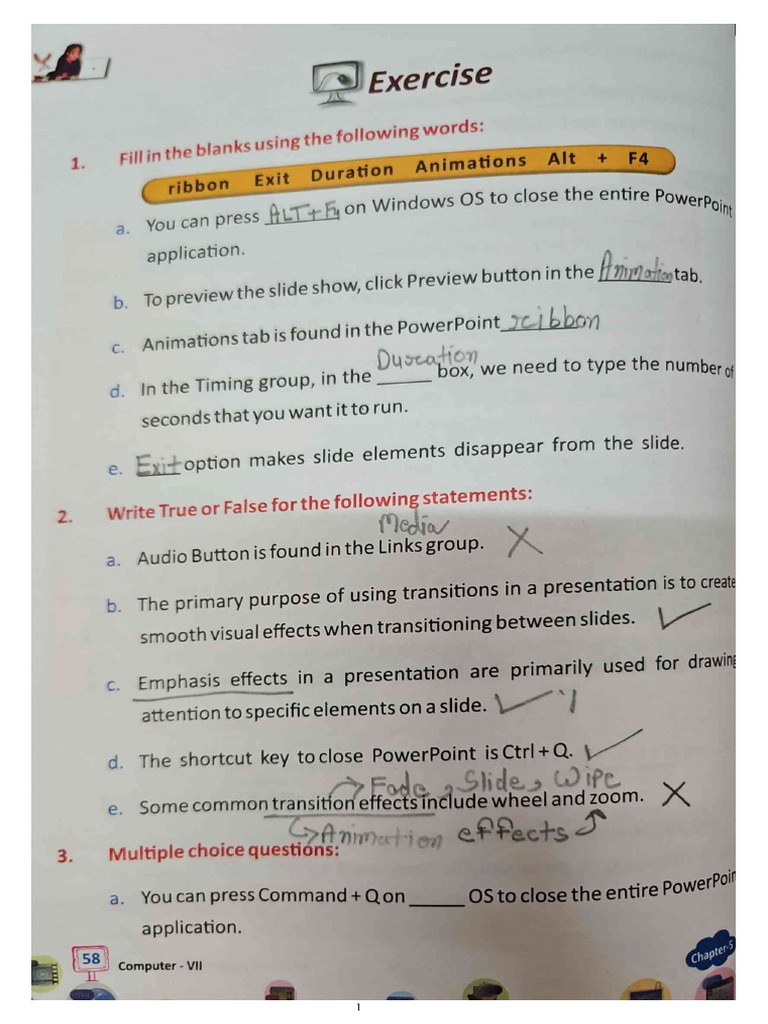 Exercise
1. Fill in the blanks using the following words:
ribbon Exit Duration Animations Alt + F4
a. You can press ALT+F4 on Windows OS to close the entire PowerPoint
application.
b. To preview the slide show, click Preview button in the Animation tab.
c. Animations tab is found in the PowerPoint ribbon
Duration
d. In the Timing group, in the ______ box, we need to type the number of
seconds that you want it to run.
e. Exit option makes slide elements disappear from the slide.
2. Write True or False for the following statements:
Media
a. Audio Button is found in the Links group. ✗
b. The primary purpose of using transitions in a presentation is to create
smooth visual effects when transitioning between slides. ✓
c. Emphasis effects in a presentation are primarily used for drawing
attention to specific elements on a slide. ✓
d. The shortcut key to close PowerPoint is Ctrl + Q. ✓
→ Fade, Slide, Wipe
e. Some common transition effects include wheel and zoom. ✗
↳ Animation effects
3. Multiple choice questions:
a. You can press Command + Q on ______ OS to close the entire PowerPoin
application.
58
Computer - VII
Chapter-5
1